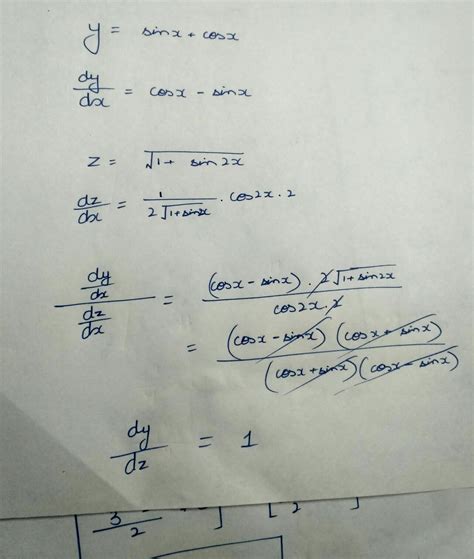 y = sinx + cosx
dy/dx = cosx - sinx
z = √(1 + sin2x)
dz/dx = 1/(2√(1+sin2x)) . cos2x . 2
(dy/dx)/(dz/dx) = ((cosx - sinx) . 2√(1+sin2x))/(cos2x . 2)
= ((cosx - sinx) (cosx + sinx))/((cosx + sinx) (cosx - sinx))
dy/dz = 1
3/2 ] [ 2 ]